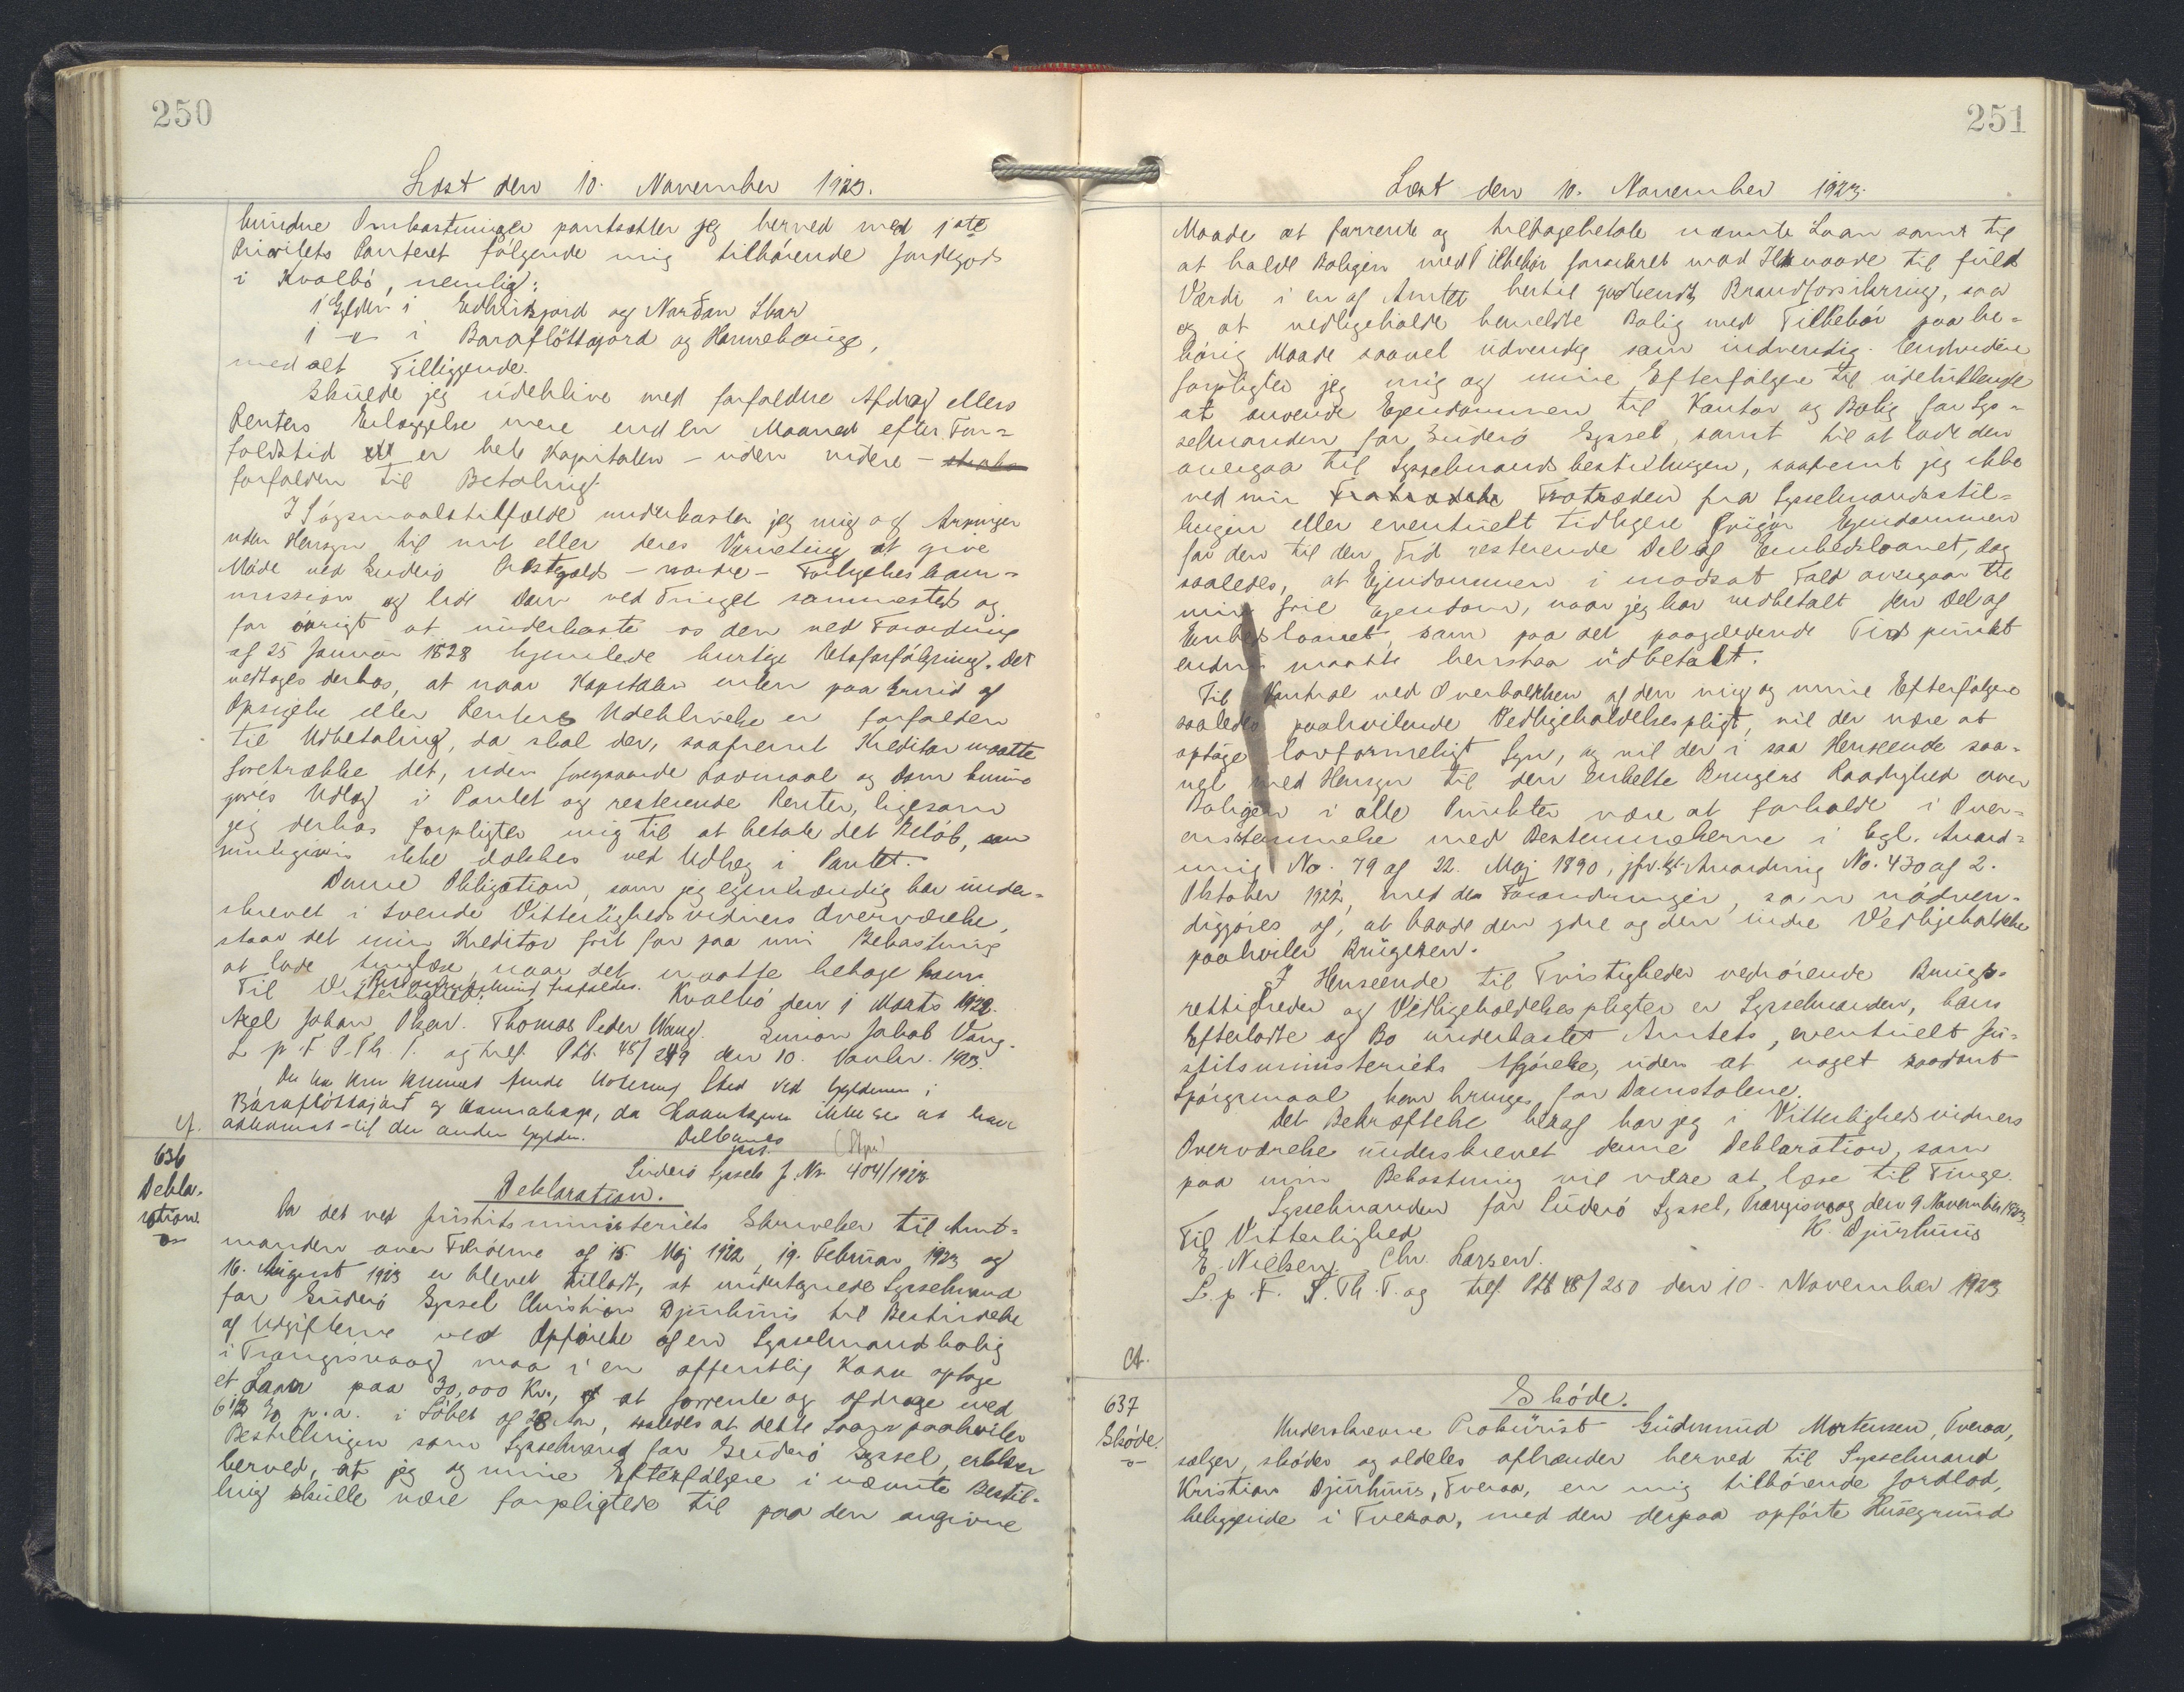 250
Læst den 10. November 1923.
bundne Omkostninger pantsætter jeg herved med 1ste
Prioritets Panteret følgende mig tilhørende Jordegods
i Kvalbø, nemlig:
1 Gylden i og Nordan Skar
1 -"- i Baraflöttagjord og
med alt Tilliggende.
Skulde jeg udeblive med forfaldne Afdrag ellers
Renters Erlæggelse mere end en Maaned efter For=
faldstid er hele Kapitalen - uden videre -
forfalden til Betaling.
I Søgsmaalstilfælde underkaster jeg mig og Arvinger
uden Hensyn til mit eller deres Værneting at give
Møde ved Suderø Præstegælds - nordre - Forligelseskom=
mission og lide Dom ved Tinget sammesteds og
for øvrigt at underkaste os den ved Forordning
af 25 Januar 1828 hjemlede hurtige Retsforfølgning. Det
vedtages derhos, at naar Kapitalen enten paa Grund af
Opsigelse eller Renters Udeblivelse er forfalden
til Udbetaling, da skal der, saafremt Kreditor maatte
foretrække det, uden foregaaende Lovmaal og Dom kunne
gøres Udlæg i Pantet og resterende Renter, ligesom
jeg derhos forpligter mig til at betale det Beløb, som
muligvis ikke dækkes ved Udlæg i Pantet.
Denne Obligation, som jeg egenhændig har under=
skrevet i tvende Vitterlighedsvidners Overværelse,
staar det min Kreditor frit for paa min Bekostning
at lade tinglæse, naar det maatte behage ham.
Til Vitterlighed: Kvalbø den 1 Marts 1922.
Axel Johan Olsen. Thomas Peder Wang. Simon Jakob Vang.
L. p. F. S. Th. T. og tilf. Ptb. 48/249 den 10. Novbr. 1923.
Det har kun kunnet finde Notering Sted ved Gyldenen i
Baraflöttagjørd og da Laantageren ikke ses at have
Adkomst til den anden Gylden.
cf.
636
Dekla-
ration.
Suderø Syssels J. Nr. 404/1923.
Deklaration.
Da det ved Justitsministeriets Skrivelser til Amt=
manden over Færøerne af 15. Maj 1922, 19. Februar 1923 og
16. August 1923 er blevet tilladt, at undertegnede Sysselmand
for Suderø Syssel Christian Djurhuus til Bestridelse
af Udgifterne ved Opførelse af en Sysselmandsbolig
i Trangisvaag maa i en offentlig Kasse optage
et Laan paa 30,000 Kr., at forrente og afdrage med
6 1/2 % p.a. i Løbet af 28 Aar, saaledes at dette Laan paahviler
Bestillingen som Sysselmand for Suderø Syssel, erklærer
herved, at jeg og mine Efterfølgere i nævnte Bestil=
ling skulle være forpligtede til paa den angivne
251
Læst den 10. November 1923.
Maade at forrente og tilbagebetale nævnte Laan samt til
at holde Boligen med Tilbehør forsikret mod Ildsvaade til fuld
Værdi i en af Amtet hertil godkendt Brandforsikring, saa
og at vedligeholde bemeldte Bolig med Tilbehør paa be=
hørig Maade saavel udvendig som indvendig. Endvidere
forpligter jeg mig og mine Efterfølgere til udelukkende
at anvende Ejendommen til Kontor og Bolig for Sys=
selmanden for Suderø Syssel, samt til at lade den
overgaa til Sysselmandsbestillingen, saafremt jeg ikke
ved min Fratræden fra Sysselmandsstil=
lingen eller eventuelt tidligere frigør Ejendommen
for den til den Tid resterende Del af Embedslaanet, dog
saaledes, at Ejendommen i modsat Fald overgaar til
min frie Ejendom, naar jeg har indbetalt den Del af
Embedslaanet, som paa det paagældende Tidspunkt
endnu maatte henstaa udbetalt.
Til Kontrol ved Overholdelsen af den mig og mine Efterfølgere
saaledes paahvilende Vedligeholdelsespligt, vil der være at
optage lovformeligt Syn, og vil der i saa Henseende saa=
vel med Hensyn til den enkelte Brugers Raadighed over
Boligen i alle Punkter være at forholde i Over=
ensstemmelse med Bestemmelserne i kgl. Anord=
ning No. 79 af 22. Maj 1890, jfr. kgl. Anordning No. 430 af 2.
Oktober 1922, med de Forandringer, som nødven=
diggøres af, at baade den ydre og den indre Vedligeholdelse
paahviler Brugeren.
I Henseende til Tvistigheder vedrørende Brugs=
rettigheder og Vedligeholdelsespligter er Sysselmanden, hans
Efterladte og Bo underkastet Amtets, eventuelt Ju=
stitsministeriets Afgørelse, uden at noget saadant
Spørgsmaal kan bringes for Domstolene.
Det Bekræftelse heraf har jeg i Vitterlighedsvidners
Overværelse underskrevet denne Deklaration, som
paa min Bekostning vil være at læse til Tinge.
Sysselmanden for Suderø Syssel, Trangisvaag den 9 November 1923.
Til Vitterlighed K. Djurhuus
E. Nielsen. Chr. Larsen.
L. p. F. S. Th. T. og tilf. Ptb 48/250 den 10. November 1923
cf.
637
Skøde.
Skøde.
Underskrevne Prokurist Gudmund Mortensen, Tveraa,
sælger, skøder og aldeles afhænder herved til Sysselmand
Kristian Djurhuus, Tveraa, en mig tilhørende Jordlod,
beliggende i Tveraa, med den derpaa opførte Husegrund